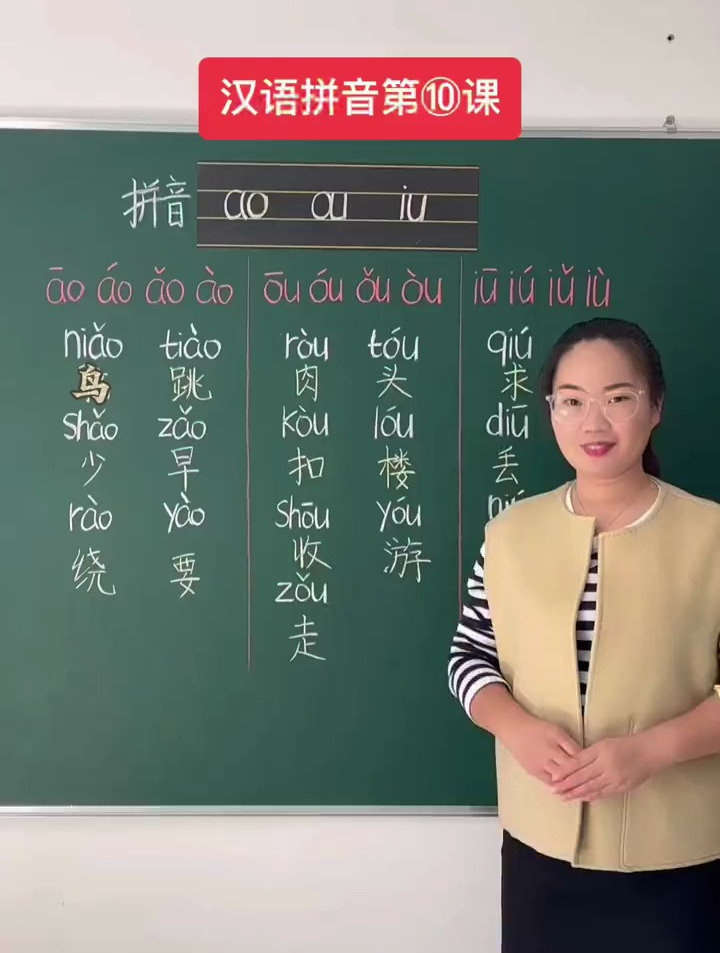 汉语拼音第⑩课
拼音 ao ou iu
āo áo ǎo ào ōu óu ǒu òu iū iú iǔ iù
niǎo tiào ròu tóu qiú
鸟 跳 肉 头 求
shǎo zǎo kòu lóu diū
少 早 扣 楼 丢
rào yào shōu yóu
绕 要 收 游
zǒu
走